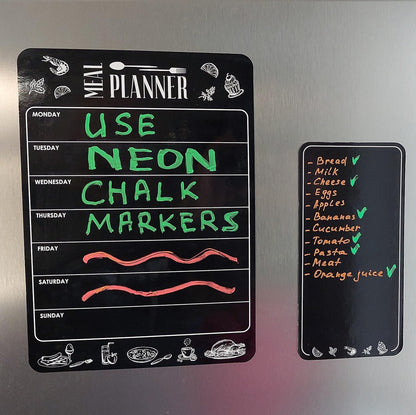 MEAL PLANNER
MONDAY
USE
TUESDAY
NEON
WEDNESDAY
CHALK
THURSDAY
MARKERS
FRIDAY
SATURDAY
SUNDAY
- Bread ✓
- Milk
- Cheese ✓
- Eggs
- Apples
- Bananas ✓
- Cucumber
- Tomato ✓
- Pasta ✓
- Meat
- Orange juice ✓